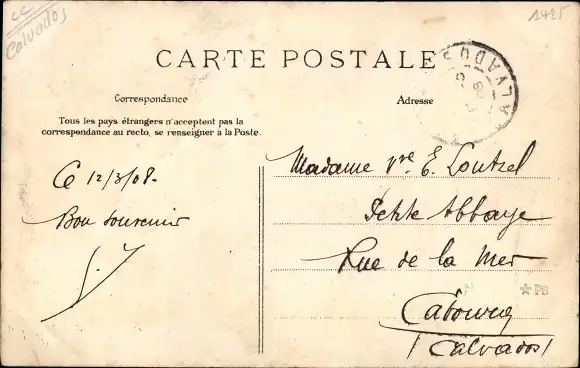 CC
Calvados
1425
CARTE POSTALE
CALVADOS
Correspondance
Adresse
Tous les pays étrangers n'acceptent pas la
correspondance au recto, se renseigner à la Poste.
Ce 12/3/08-
Bon souvenir
Madame Vve E. Loutrel
Petite Abbaye
Rue de la Mer
Cabourg
(Calvados)